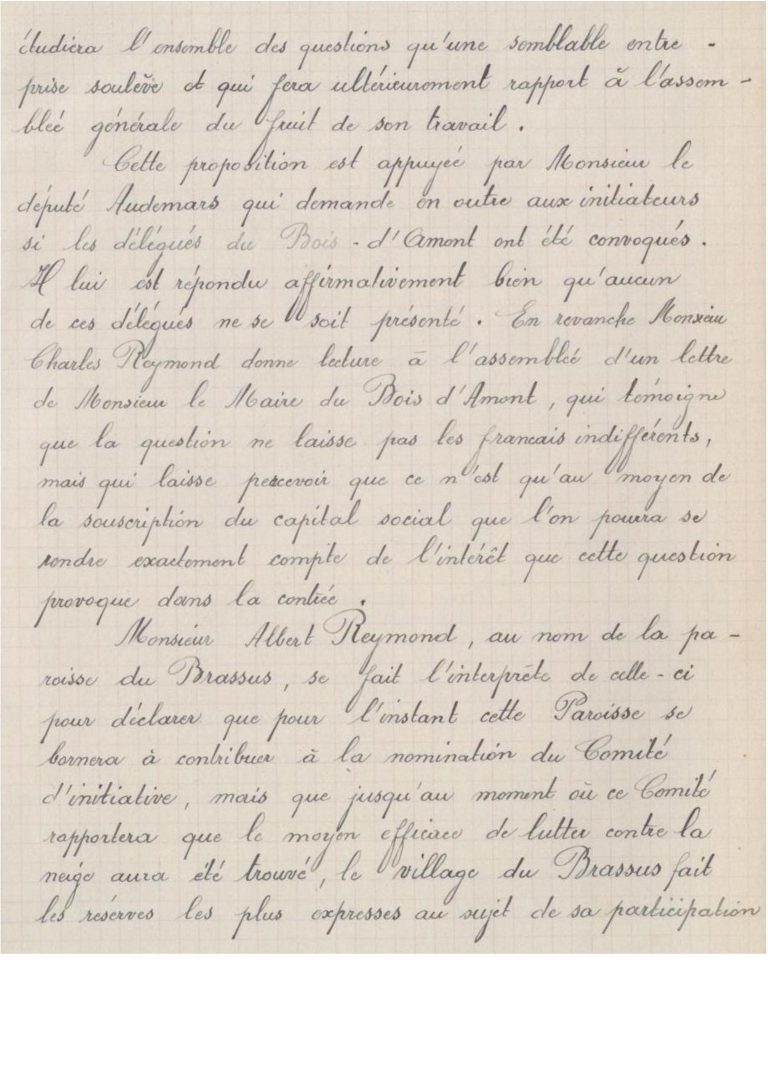 étudiera l'ensemble des questions qu'une semblable entre -
prise soulève et qui fera ultérieurement rapport à l'assem -
bleé générale du fruit de son travail .
Cette proposition est appuyeé par Monsieur le
député Audemars qui demande en outre aux initiateurs
si les délégués du Bois - d'Amont ont été convoqués .
Il lui est répondu affirmativement bien qu'aucun
de ces délégués ne se soit présenté . En revanche Monsieur
Charles Reymond donne lecture à l'assembleé d'un lettre
de Monsieur le Maire du Bois d'Amont , qui témoigne
que la question ne laisse pas les francais indifférents ,
mais qui laisse percevoir que ce n'est qu'au moyen de
la souscription du capital social que l'on pourra se
rendre exactement compte de l'intérêt que cette question
provoque dans la contrée .
Monsieur Albert Reymond , au nom de la pa -
roisse du Brassus , se fait l'interprète de celle - ci
pour déclarer que pour l'instant cette Paroisse se
bornera à contribuer à la nomination du Comité
d'initiative , mais que jusqu'au moment où ce Comité
rapportera que le moyen efficace de lutter contre la
neige aura été trouvé , le village du Brassus fait
les réserves les plus expresses au sujet de sa participation